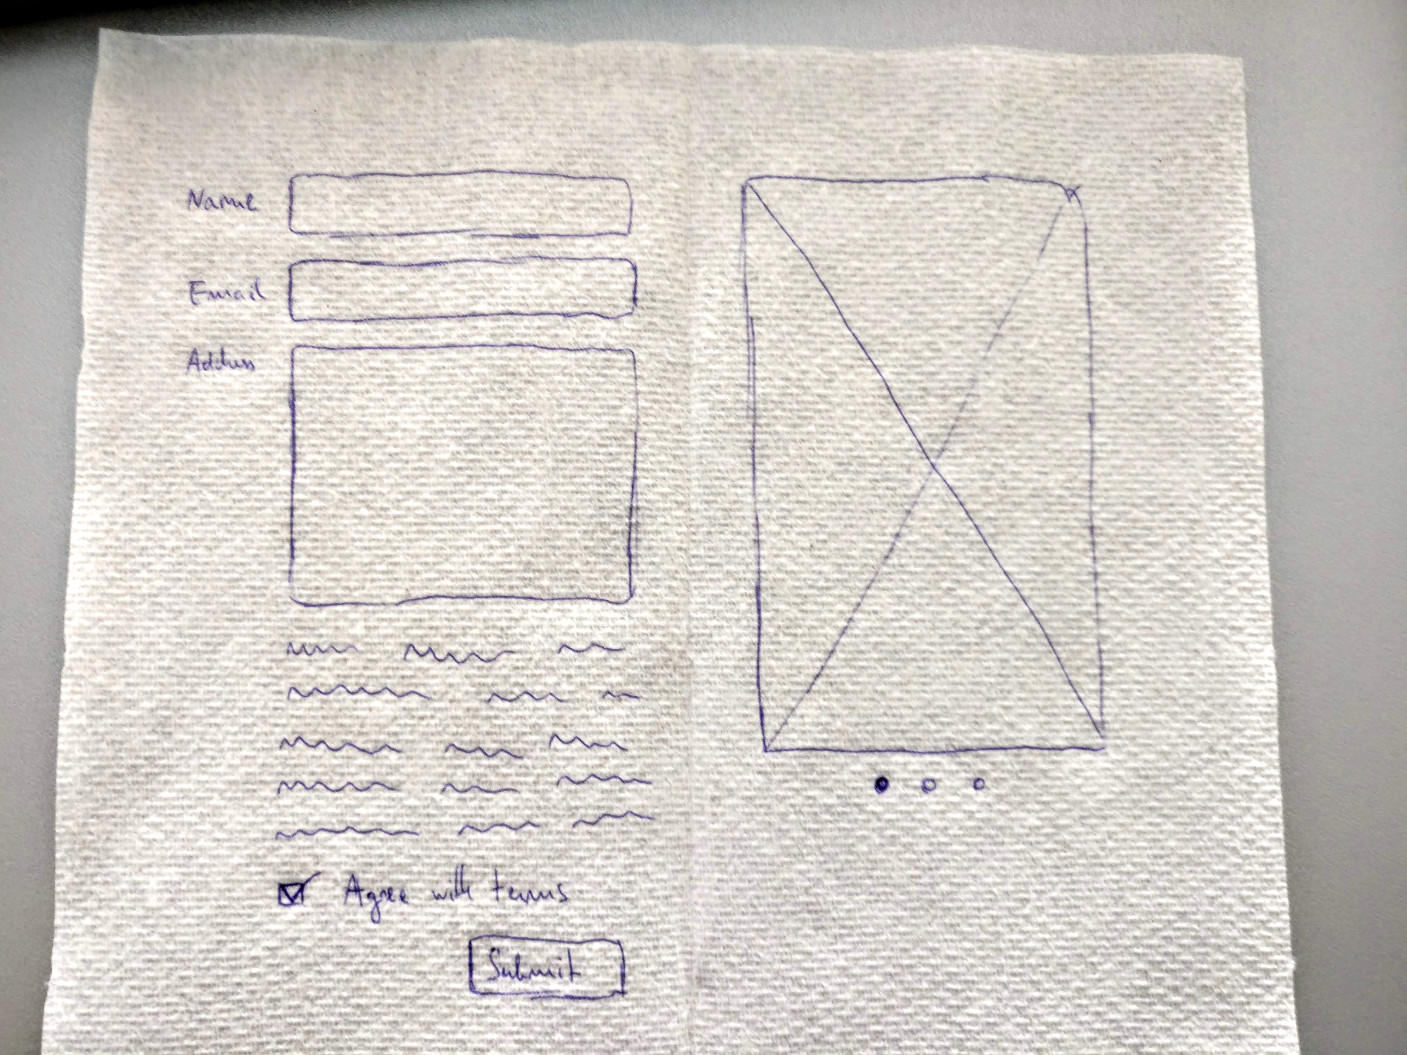 Name
Email
Address
Agree with terms
Submit